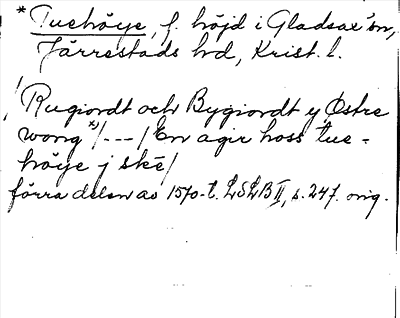 * Tuehöye, f. höjd i Gladsax sn,
Järrestads hd, Krist. l.
/ Rugiordt och Bygiordt y Østre
wong *)/---/ En agir hoss tue=
höye j skē/
förra delen av 1570-t. LSLB II, s. 247. orig.